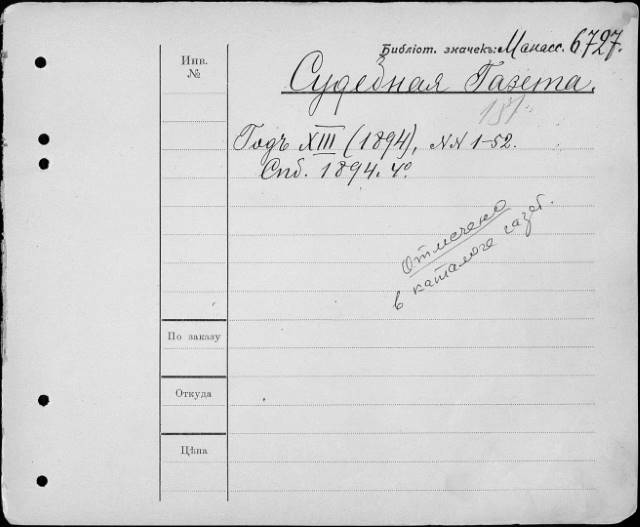 Библіот. значекъ: Манасс. 6727.
Инв.
№
Судебная Газета.
151.
Годъ XIII (1894), NN 1-52.
Спб. 1894. 4°.
Отмечено
в каталоге газет.
По заказу
Откуда
Цѣна